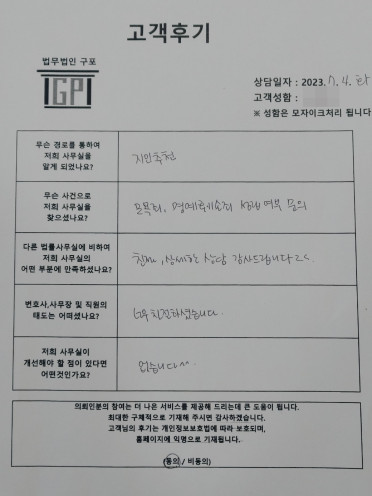 고객후기
법무법인 구포
GP
상담일자 : 2023. 7. 4. 화
고객성함 :
※ 성함은 모자이크처리 됩니다
무슨 경로를 통하여
저희 사무실을
알게 되었나요?
지인추천
무슨 사건으로
저희 사무실을
찾으셨나요?
모욕죄, 명예훼손죄 성립 여부 문의
다른 법률사무실에 비하여
저희 사무실의
어떤 부분에 만족하셨나요?
친절, 상세하는 상담 감사드립니다
변호사,사무장 및 직원의
태도는 어떠셨나요?
너무 친절하셨습니다.
저희 사무실이
개선해야 할 점이 있다면
어떤것인가요?
없습니다^^
의뢰인분의 참여는 더 나은 서비스를 제공해 드리는데 큰 도움이 됩니다.
최대한 구체적으로 기재해 주시면 감사하겠습니다.
고객님의 후기는 개인정보보호법에 따라 보호되며,
홈페이지에 익명으로 기재됩니다.
(동의 / 비동의)